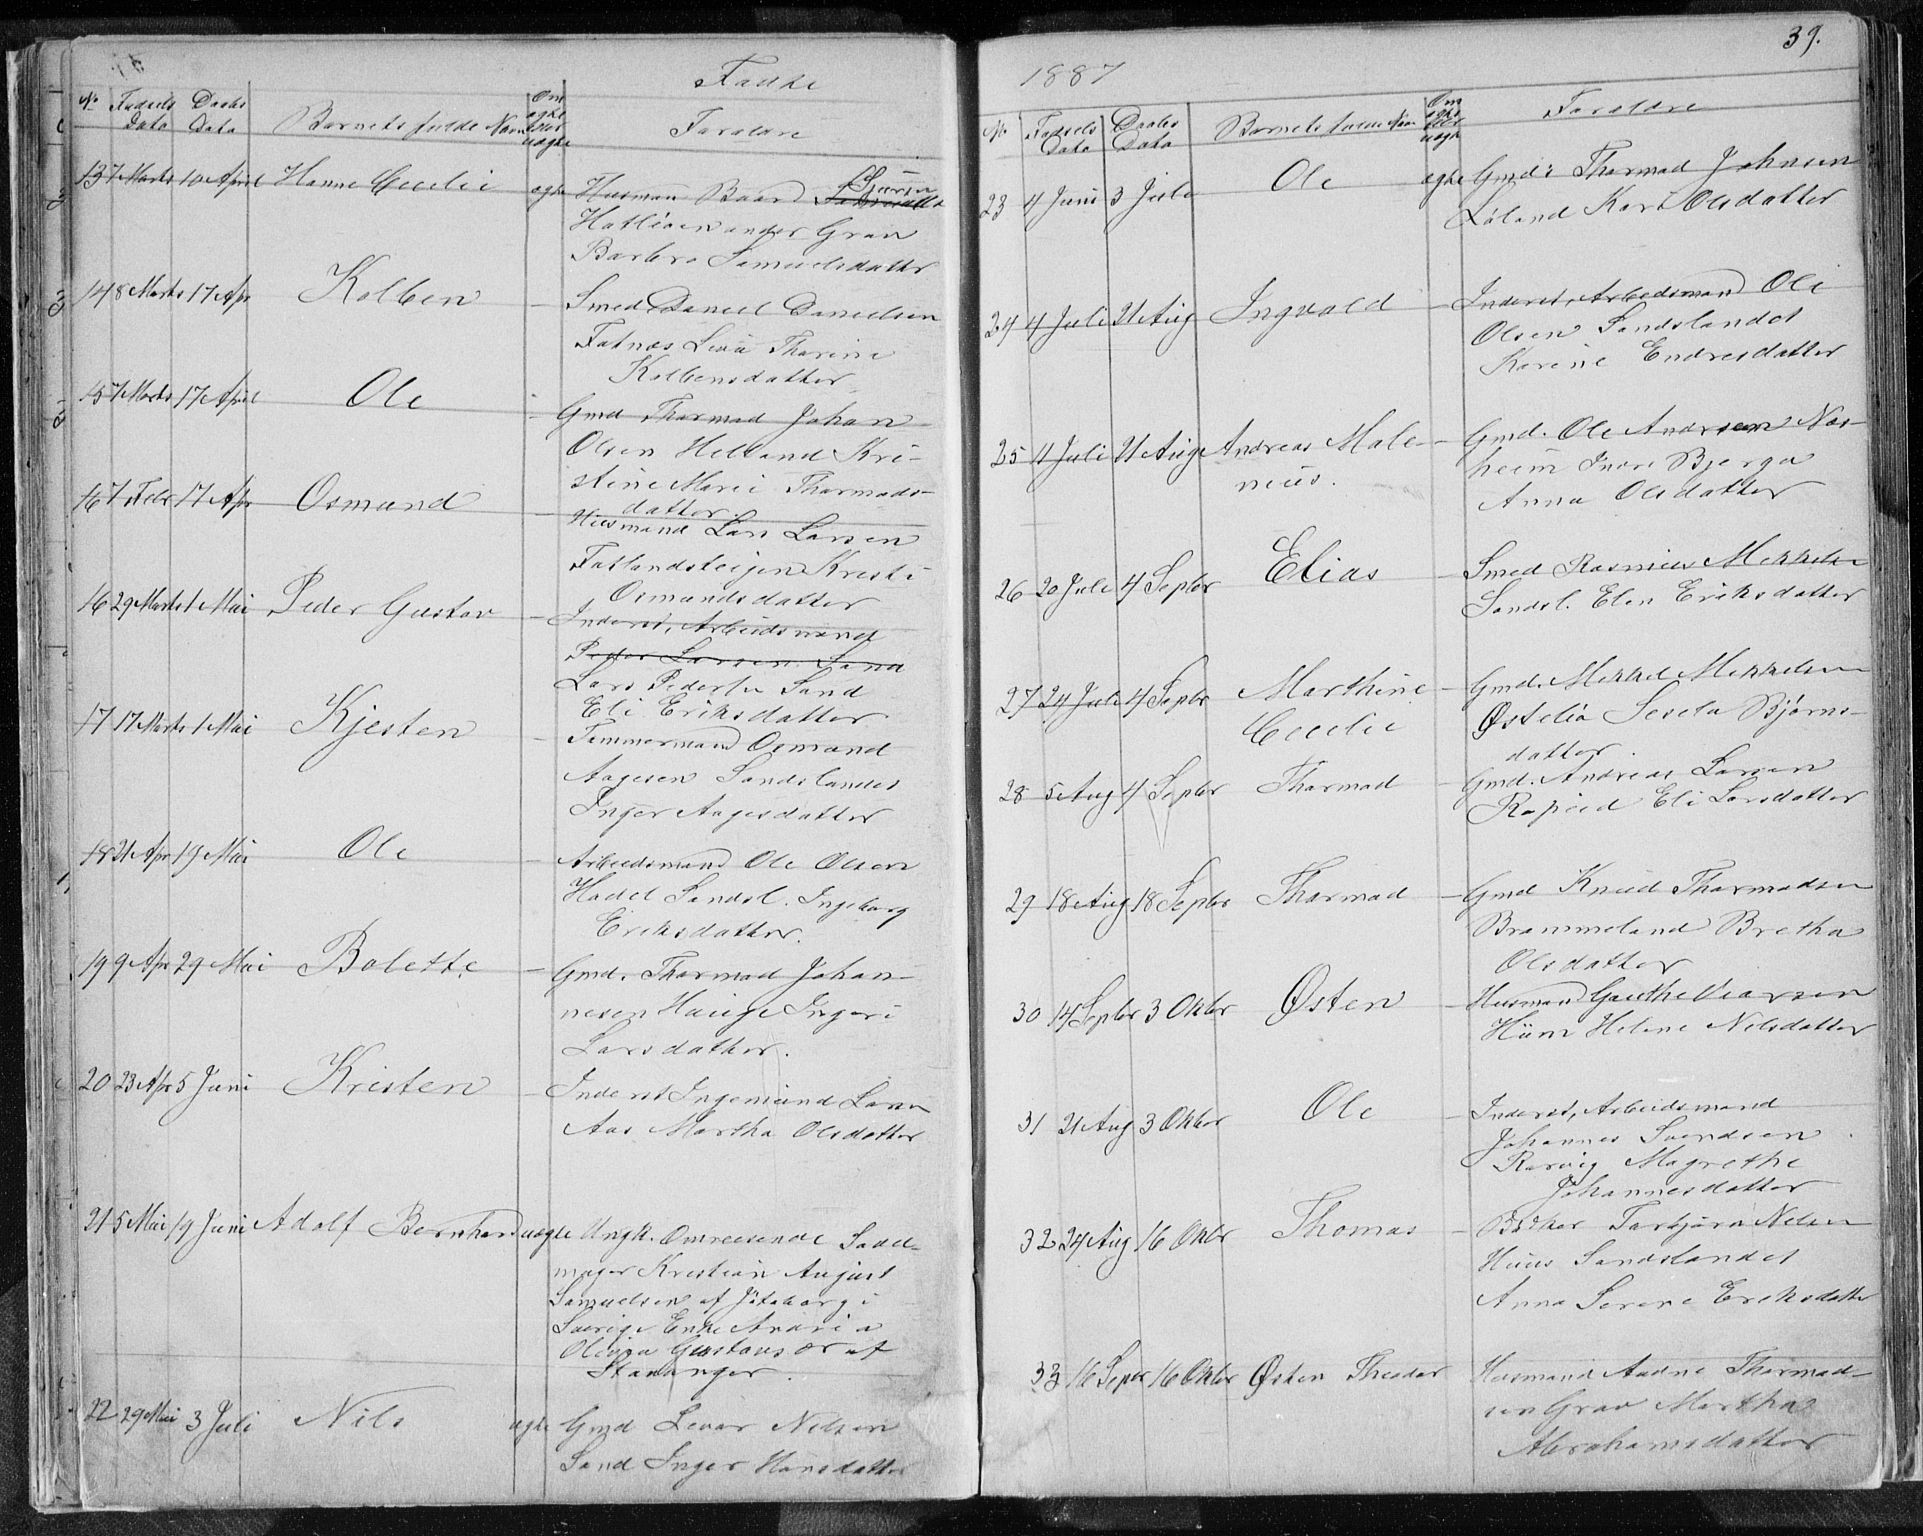 Fødte
No Fødsels Daabs Barnets fulde Navn Om Forældre
Data Data ægte
eller
uægte
13 7 Marts 10 April Hanne Cecelie ægte Husman Baard Sjursen
Hatløen under Grav
Barbro Samuelsdatter
14 8 Marts 17 Apr Kolben - Smed Daniel Danielsen
Fatnæs Lava Thorine
Kolbensdatter
15 7 Marts 17 April Ole - Gmd Thormod Johan
Olsen Helland Kri-
stine Marie Thormods-
datter.
16 7 Feb 17 Apr Osmund - Husmand Lars Larsen
Fatlandsteigen Kristi
Osmundsdatter
16 29 Marts 1 Mai Peder Gustav - Inderst, Arbeidsmand
Peder Larsen Sand
Lars Pedersen Sand
Eli Eriksdatter
17 17 Marts 1 Mai Kjesten - Tømmermand Osmund
Aagesen Sandslandet
Inger Aagesdatter
18 21 Apr 19 Mai Ole - Arbeidsmand Ole Olsen
Hadel Sandsl. Ingeborg
Eriksdatter.
19 9 Apr 29 Mai Bolette - Gmd. Thormod Johan-
nesen Hauge Ingeri
Larsdatter.
20 23 Apr 5 Juni Kristen - Inderst Ingemund Larsen
Aas Martha Olsdatter
21 5 Mai 19 Juni Adolf Bernhard uægte Ungk. Omreisende Sadel-
mager Kristian August
Samuelsen af Jøteborg i
Sverige Enke Andrea
Olivia Gustavsdr af
Stavanger.
22 29 Mai 3 Juli Nils ægte Gmd Levar Nilsen
Sand Inger Hansdatter
39.
1887
No Fødsels Daabs Barnets fulde Navn Om Forældre
Data Data ægte
eller
uægte
23 4 Juni 3 Juli Ole ægte Gmd: Thormod Johnsen
Løland Kari Olsdatter
24 4 Juli 21 Aug Ingvald - Inderst, Arbeidsmand Ole
Olsen Sandslandet
Karine Endresdatter
25 11 Juli 21 Aug Andreas Male- - Gmd. Ole Andersen Næs-
nius. heim Indre Bjerga
Anna Olsdatter
26 20 Juli 4 Septbr Elias - Smed Rasmus Mekkelsen
Sandsl. Elen Eriksdatter
27 24 Juli 4 Septbr Marthine - Gmd. Mekkel Mekkelsen
Cecelie Østeliø Sesela Bjørns-
datter.
28 5 Aug 4 Septbr Thormod - Gmd. Andreas Larsen
Eli Larsdatter
29 18 Aug 18 Septbr Thormod - Gmd Knud Thormodsen
Brommeland Bretha
Olsdatter
30 14 Septbr 3 Oktbr Østen - Husmand Gauthe Ivarsen
Hiim Helene Nilsdatter
31 21 Aug 3 Oktbr Ole - Inderst, Arbeidsmand
Johannes Svendsen
Rørvig Magrethe
Johannesdatter
32 24 Aug 16 Oktbr Thomas - Bøkker Torbjørn Nilsen
Huus Sandslandet
Anna Serine Eriksdatter
33 16 Septbr 16 Oktbr Østen Theodor Husmand Aadne Thormod-
sen Grav Martha
Abrahamsdatter